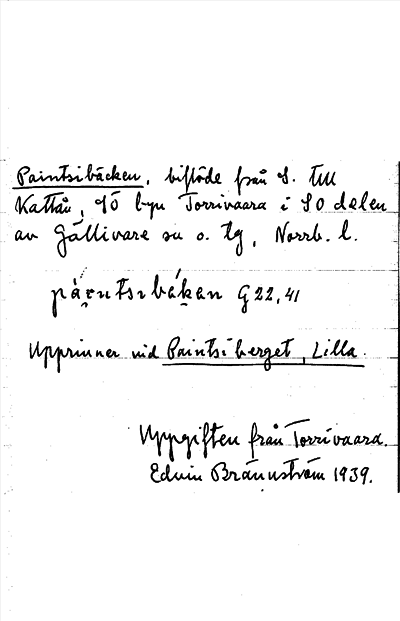 Paintsibäcken, biflöde från S. till
Kattån, SÖ byn Torrivaara i SO delen
av Gällivare sn o. tg, Norrb. l.
G 22, 41
Upprinner vid Paintsiberget, Lilla.
Uppgiften från Torrivaara.
Edvin Brännström 1939.